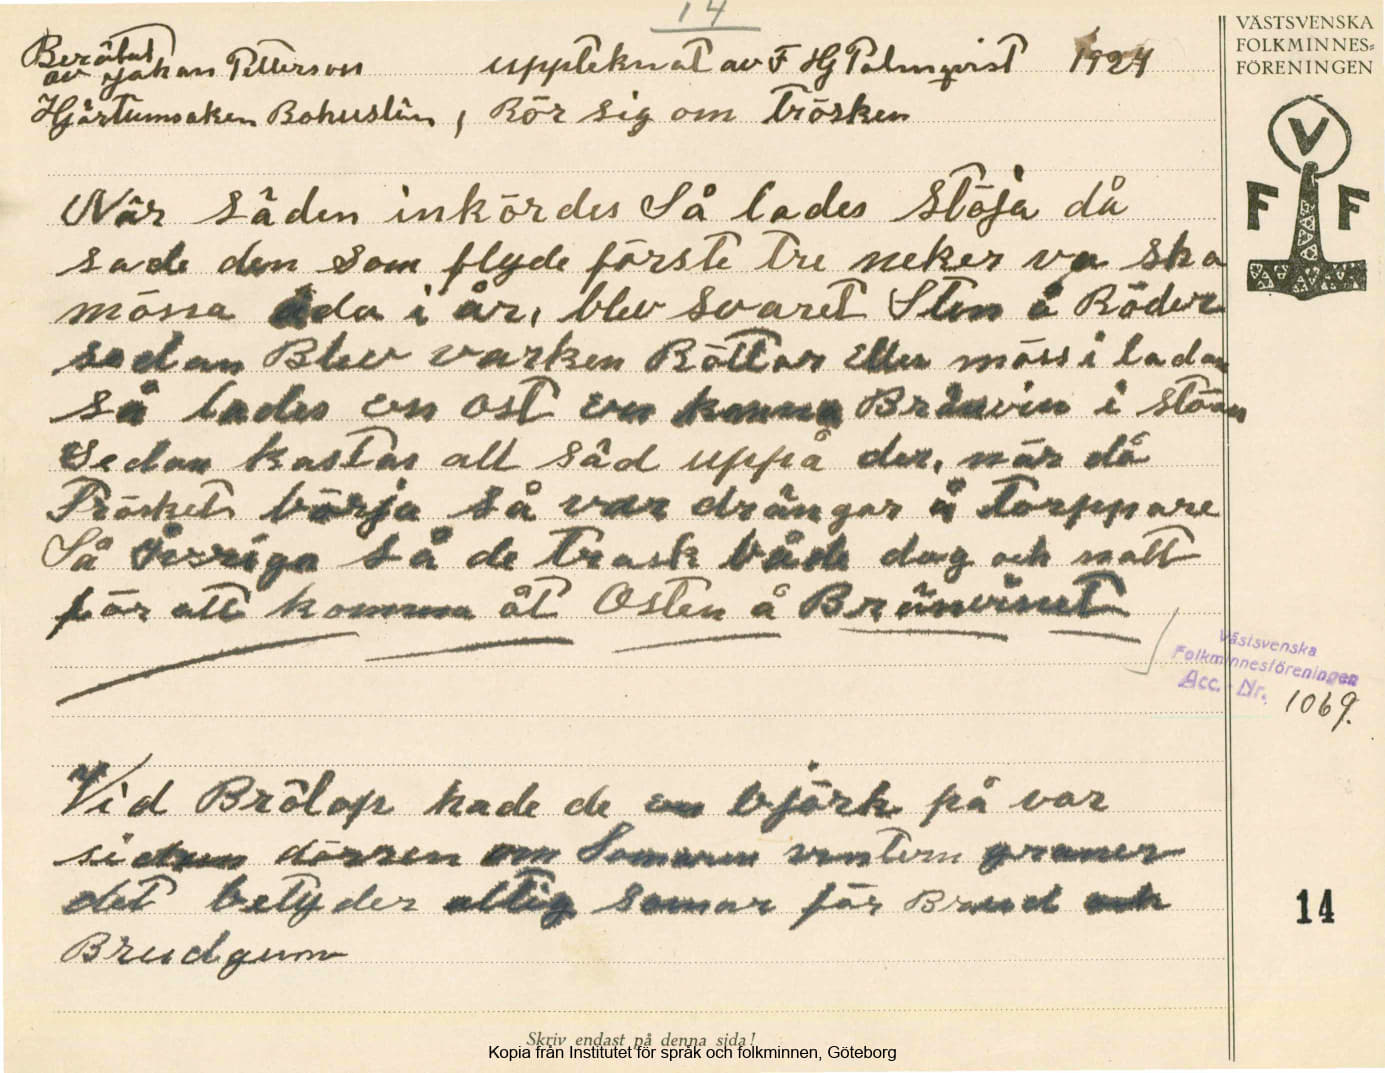 14
Berättat
av Johan Petterson upptecknat av F Hj Palmqvist 1924
Hjärtumsaken Bohuslän, Rör sig om trösken
VÄSTSVENSKA
FOLKMINNES=
FÖRENINGEN
V
F F
När säden inkördes Så lades Stöja då
sade den som flyde förste tre neker va ska
mössa äda i år, blev svaret Sten å Röder
sedan Blev varken Röttor Eller möss i ladan
så lades en ost en kanna Bränvin i stöan
Sedan kastas all säd uppå der, när då
Trösket börja så var drängar å torppare
Så ivriga så de trask både dag och natt
för att komma åt Osten å Bränvinet
Västsvenska
Folkminnesföreningen
Acc. Nr. 1069.
Vid Brölop hade de en björk på var
sidan dörren om Somaren vintern graner
det betyder altig somar för Brud och
Brudgum
14
Skriv endast på denna sida!
Kopia från Institutet för språk och folkminnen, Göteborg